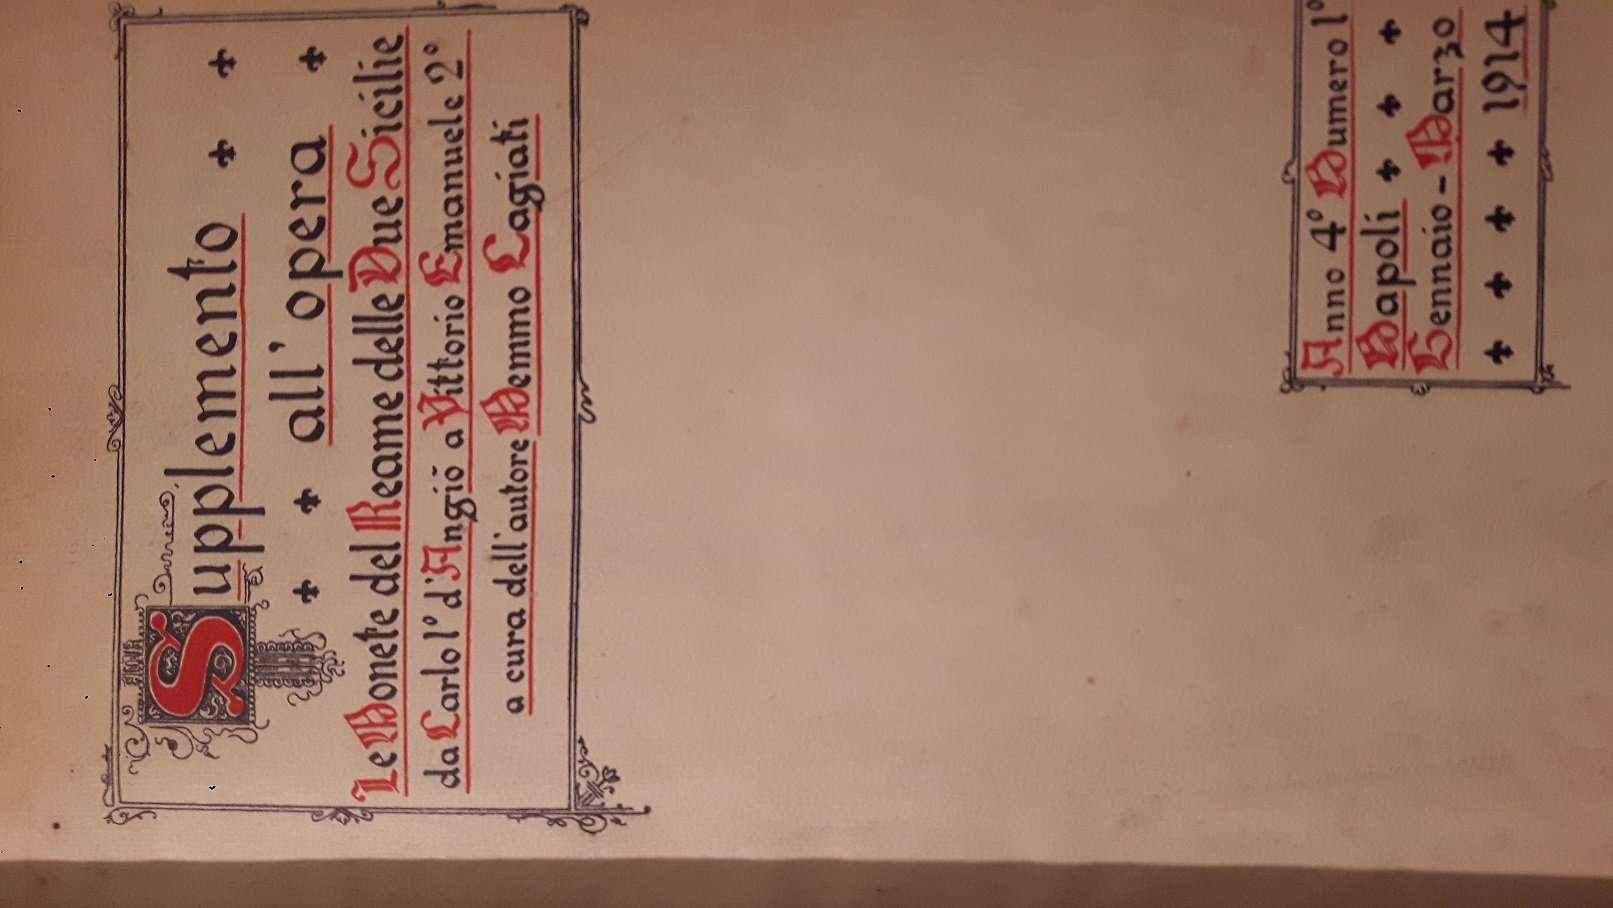 Supplemento
all' opera
Le Monete del Reame delle Due Sicilie
da Carlo I° d'Angiò a Vittorio Emanuele 2°
a cura dell'autore Memmo Cagiati
Anno 4° Numero 1°
Napoli
Gennaio - Marzo
1914